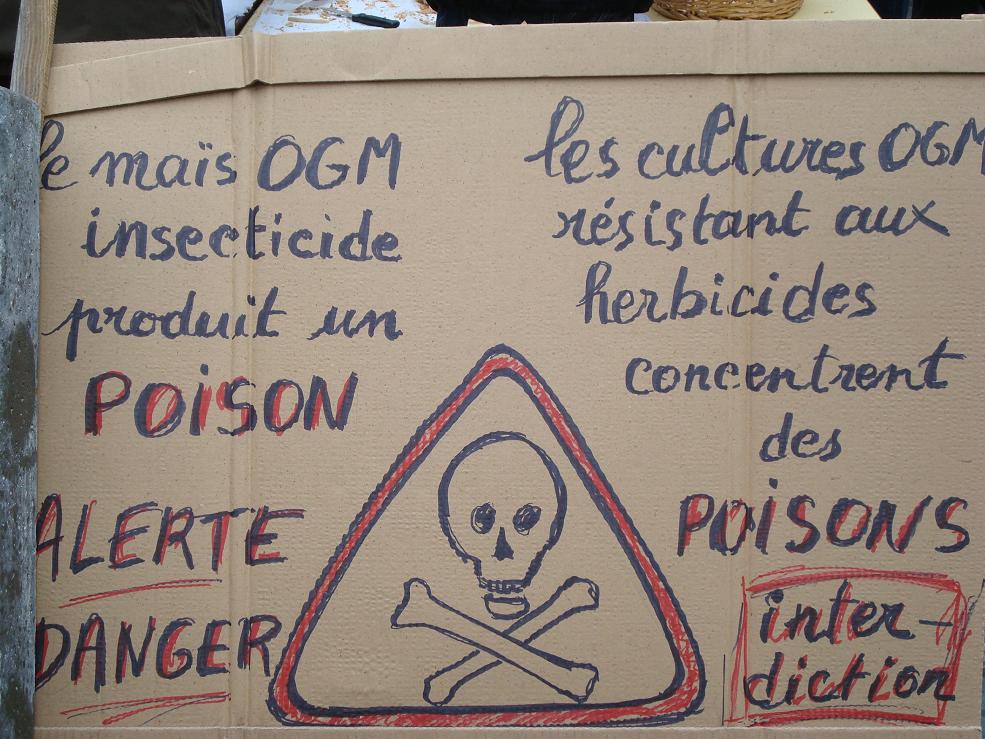 le maïs OGM
insecticide
produit un
POISON
ALERTE
DANGER
les cultures OGM
résistant aux
herbicides
concentrent
des
POISONS
inter-
diction